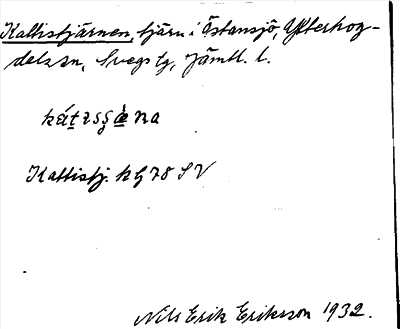 Kattistjärnen, tjärn i Östansjö, Ytterhog-
dals sn, Svegs tg, Jämtl. l.
Kattistj. kg 78 SV
Nils Erik Eriksson 1932.